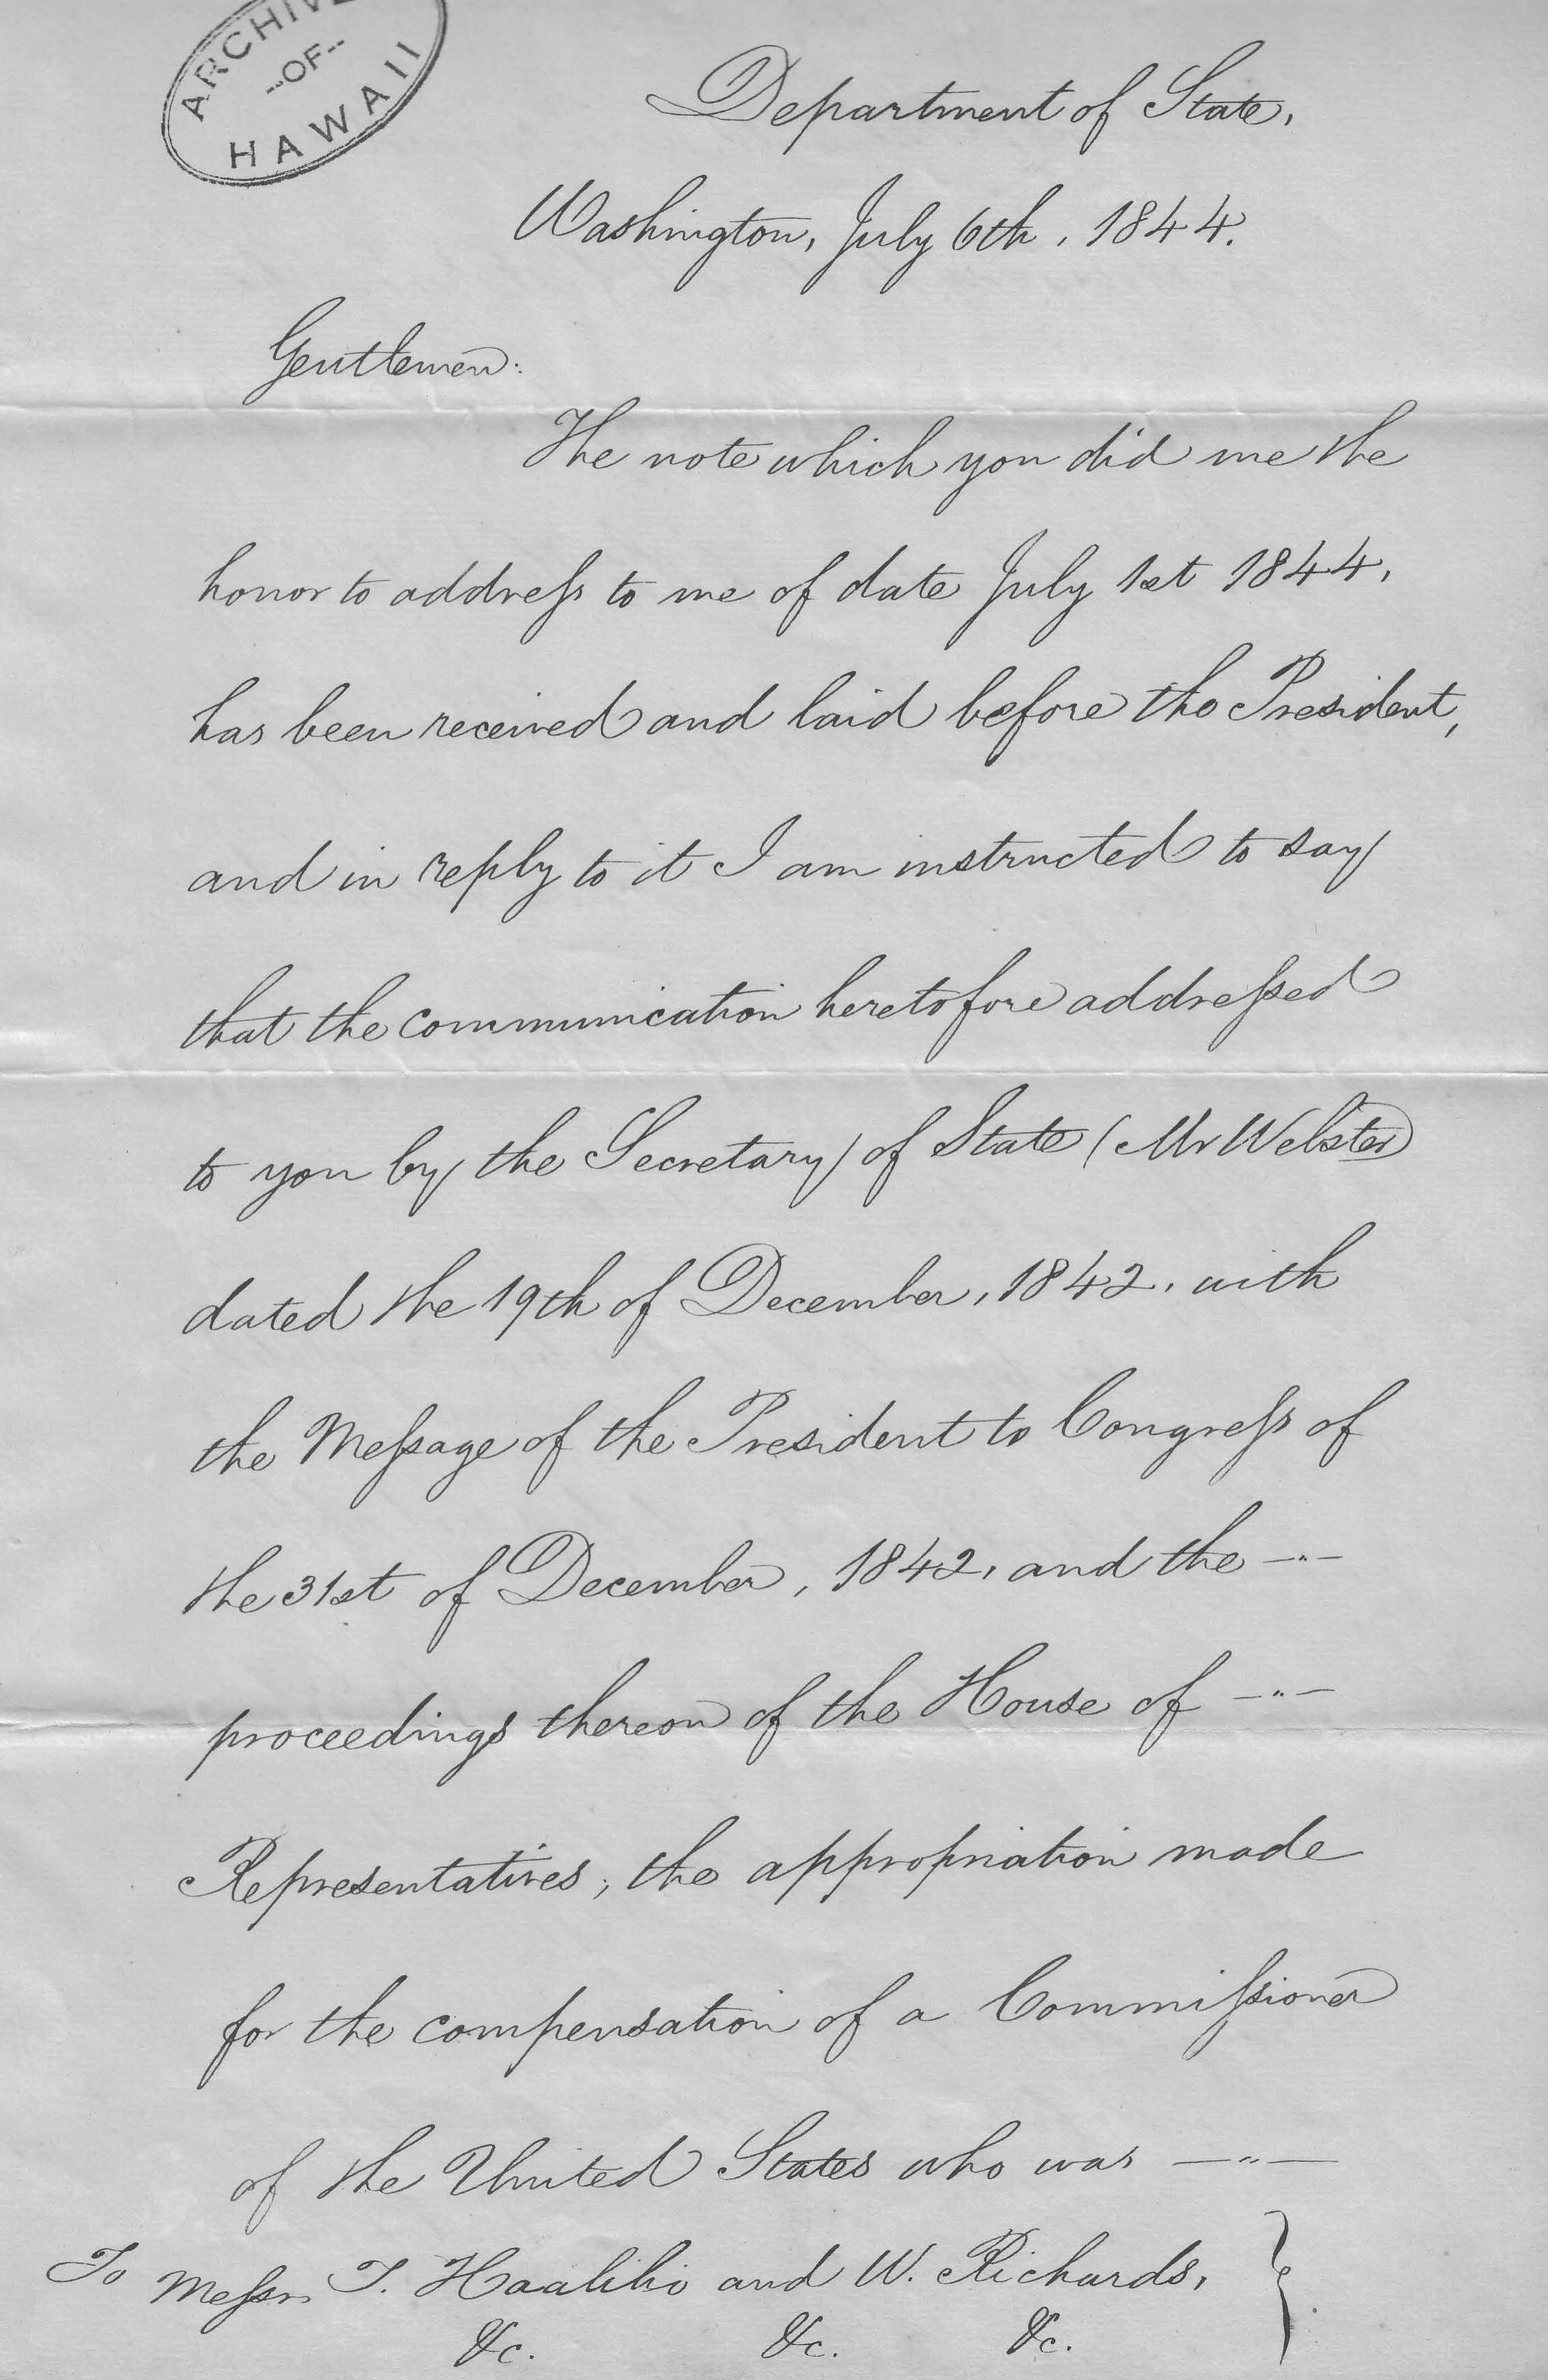 ARCHIVES
--OF--
HAWAII
Department of State,
Washington, July 6th, 1844.
Gentlemen:
The note which you did me the
honor to address to me of date July 1st 1844,
has been received and laid before the President,
and in reply to it I am instructed to say
that the communication heretofore addressed
to you by the Secretary of State (Mr Webster)
dated the 19th of December, 1842, with
the Message of the President to Congress of
the 31st of December, 1842, and the —"—
proceedings thereon of the House of —"—
Representatives; the appropriation made
for the compensation of a Commissioner
of the United States who was —"—
To Messrs T. Haalilio and W. Richards, }
&c. &c. &c.